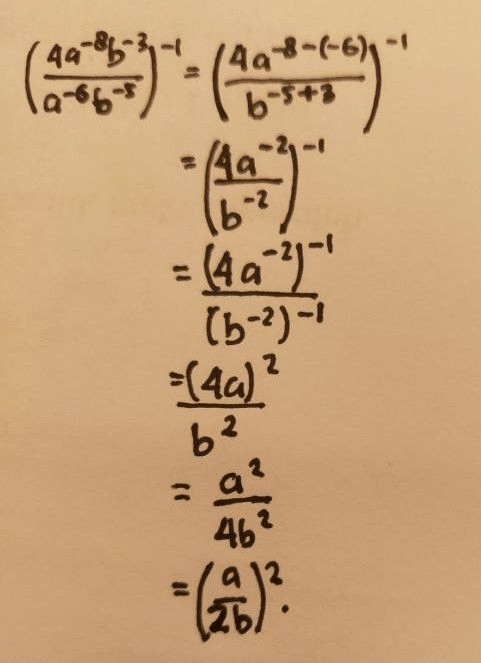 (4a⁻⁸b⁻³/a⁻⁶b⁻⁵)⁻¹ = (4a⁻⁸⁻⁽⁻⁶⁾/b⁻⁵⁺³)⁻¹
= (4a⁻²/b⁻²)⁻¹
= (4a⁻²)⁻¹/(b⁻²)⁻¹
= (4a)²/b²
= a²/4b²
= (a/2b)².